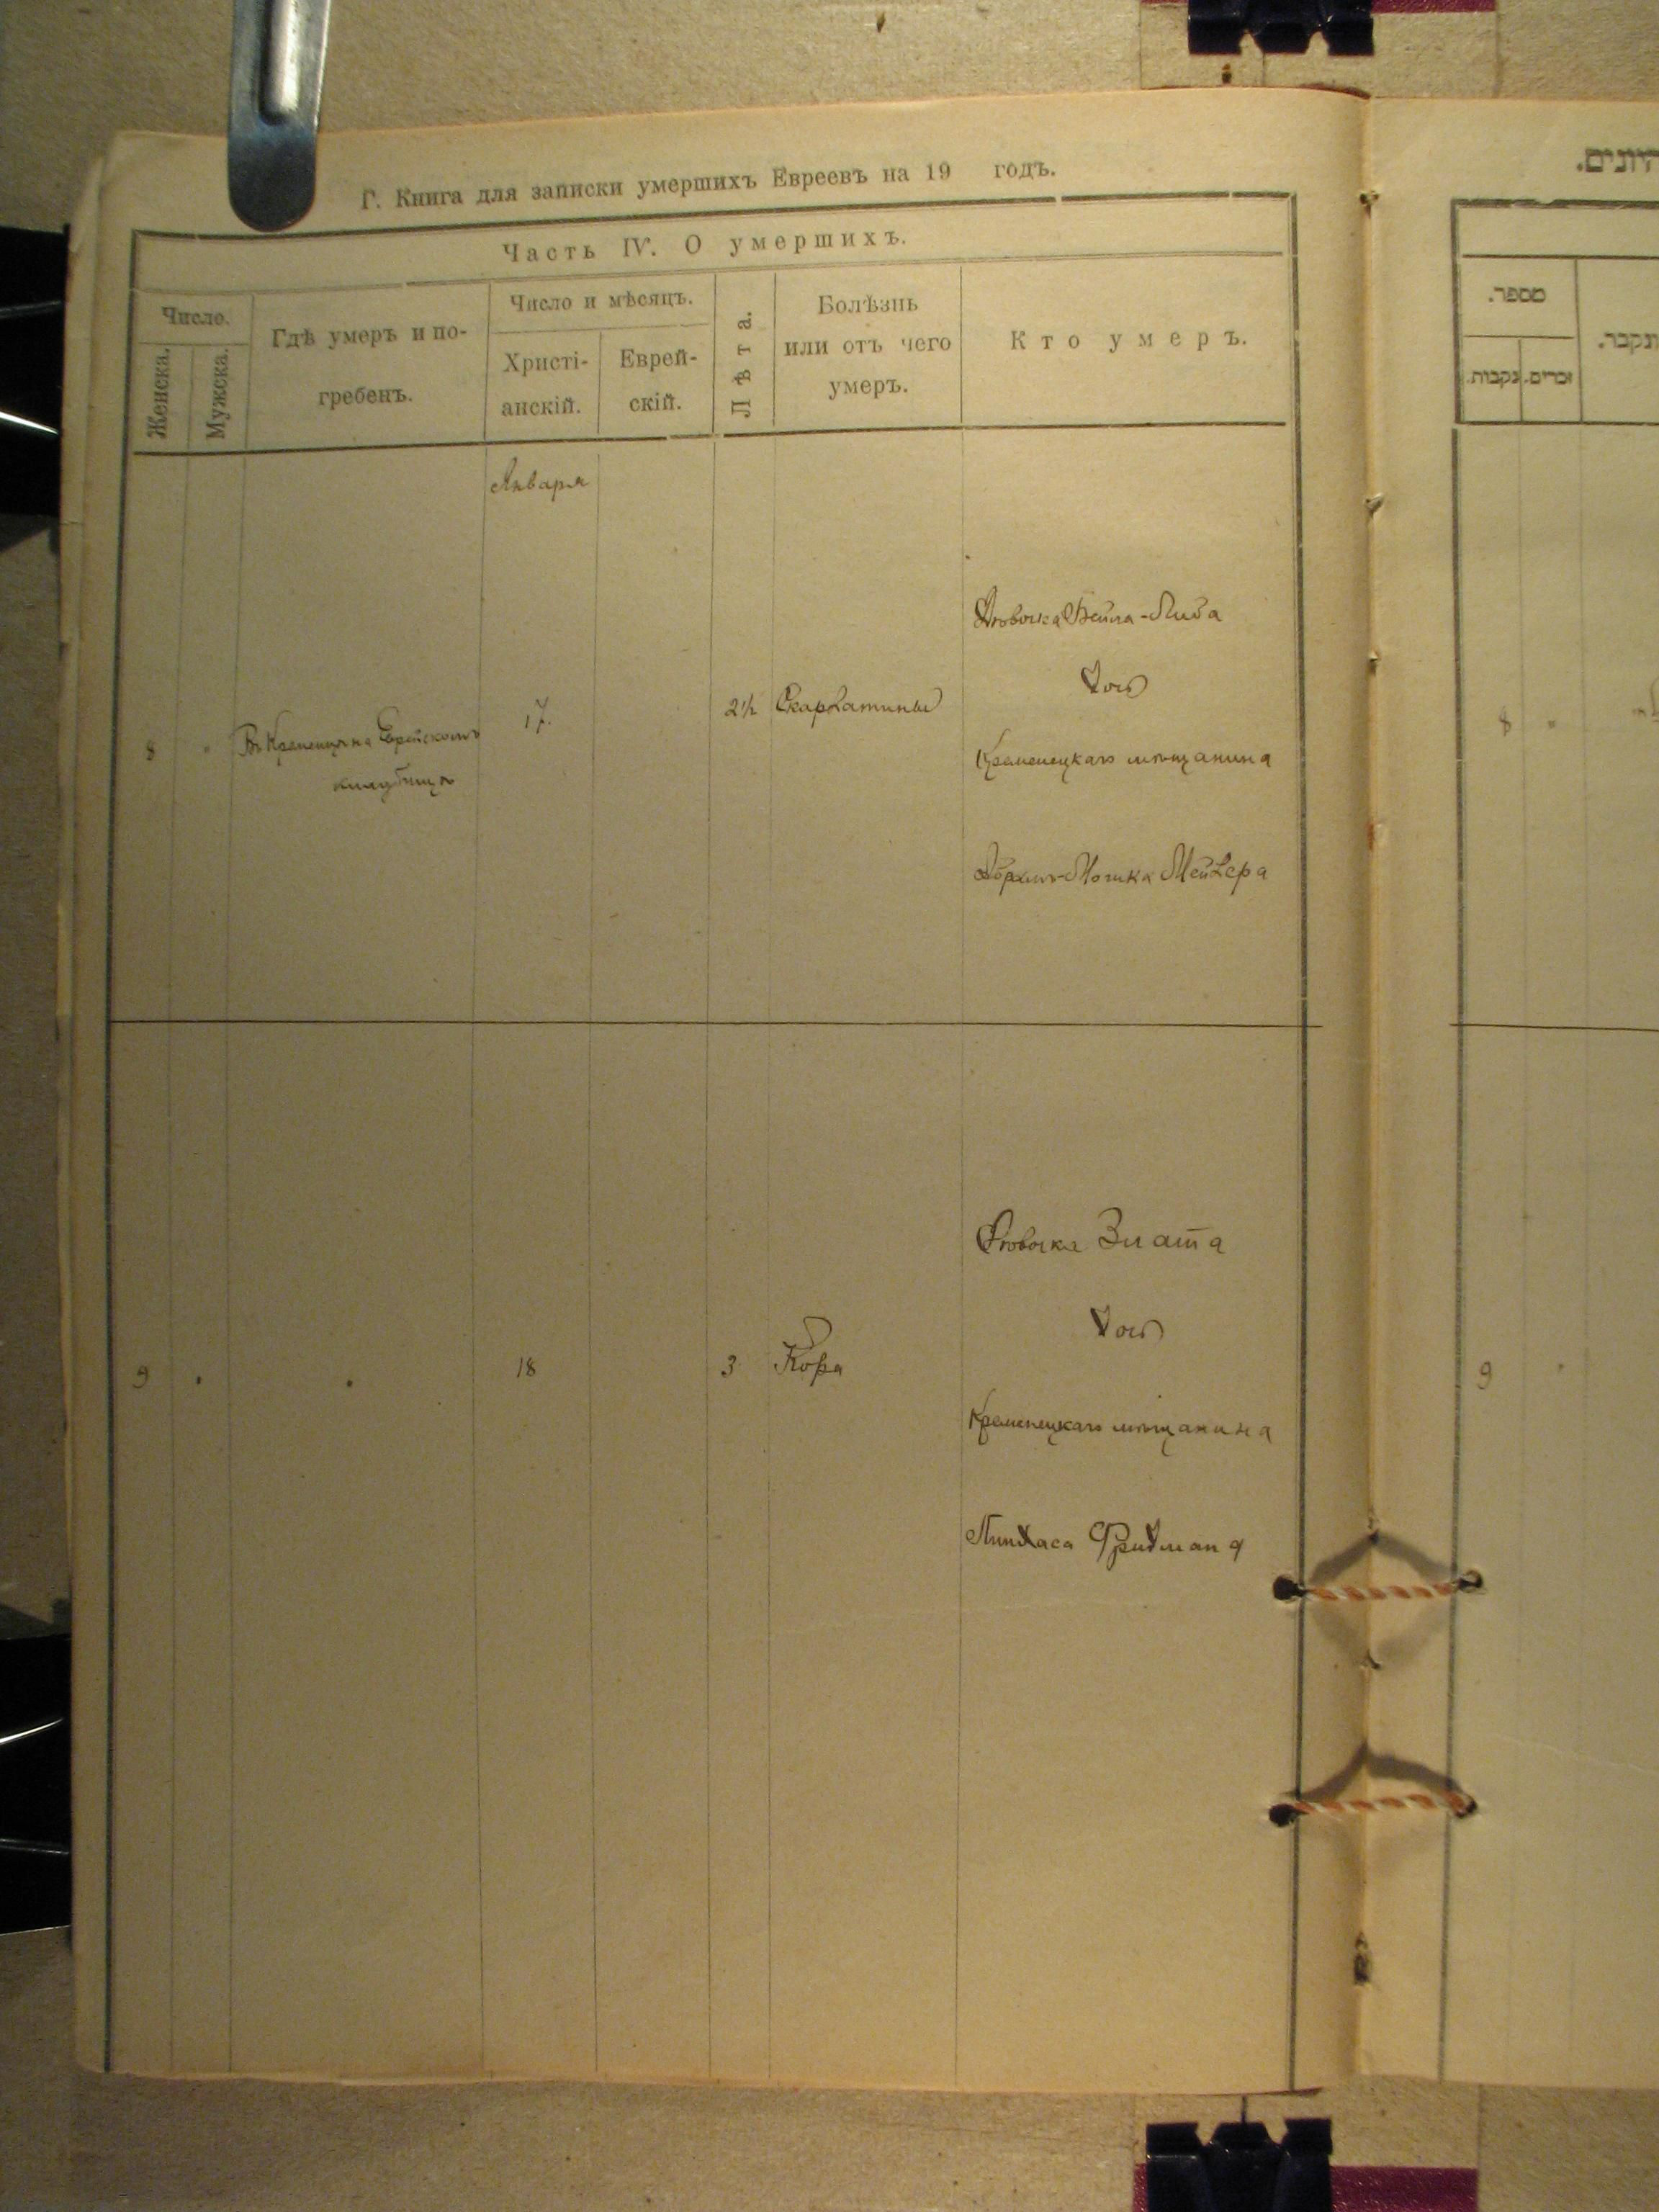 Г. Книга для записки умершихъ Евреевъ на 19 годъ.
Часть IV. О умершихъ.
Число.
Женска.
Мужска.
Гдѣ умеръ и по-
гребенъ.
Число и мѣсяцъ.
Христі-
анскій.
Еврей-
скій.
Лѣта.
Болѣзнь
или отъ чего
умеръ.
Кто умеръ.
Января
8
Въ Кременцѣ на Еврейскомъ
кладбищѣ
17.
2½
Скарлатины
Дѣвочка Бейла-Либа
дочь
Кременецкаго мѣщанина
Абрамъ-Мошка
9
18
3
Кора
Дѣвочка Злата
дочь
Кременецкаго мѣщанина
Пинхаса Фридмана
מספר.
זכרים.
נקבות.
8
9